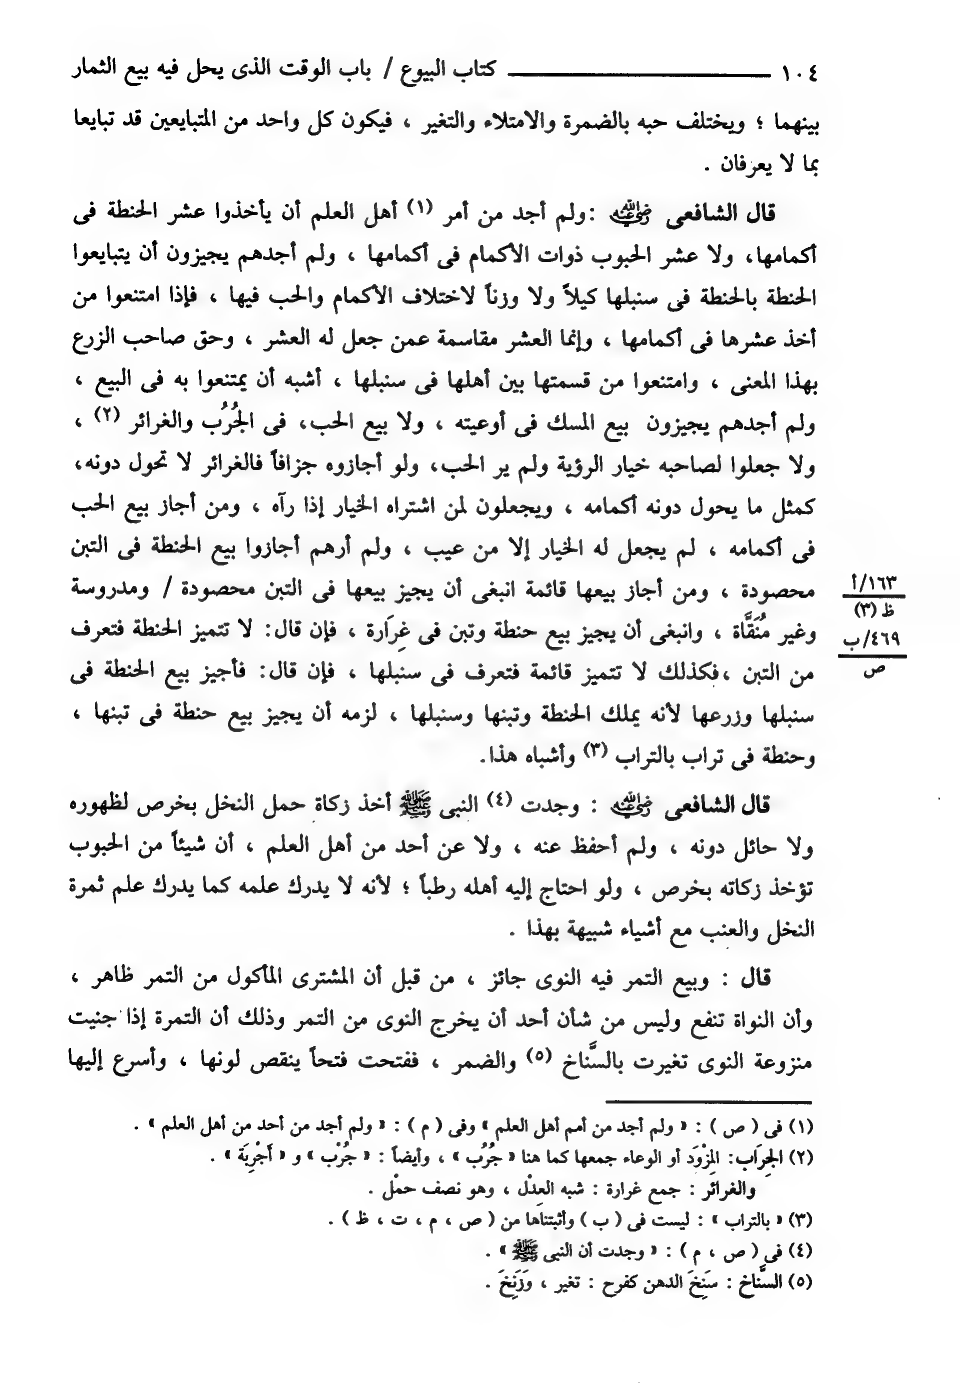 ١٠٤ ـــــــــــــ كتاب البيوع / باب الوقت الذى يحل فيه بيع الثمار
بينهما ؛ ويختلف حبه بالضمرة والامتلاء والتغير ، فيكون كل واحد من المتبايعين قد تبايعا
بما لا يعرفان .
قال الشافعى رضي الله عنه :ولم أجد من أمر (١) أهل العلم أن يأخذوا عشر الحنطة فى
أكمامها، ولا عشر الحبوب ذوات الأكمام فى أكمامها ، ولم أجدهم يجيزون أن يتبايعوا
الحنطة بالحنطة فى سنبلها كيلاً ولا وزناً لاختلاف الأكمام والحب فيها ، فإذا امتنعوا من
أخذ عشرها فى أكمامها ، وإنما العشر مقاسمة عمن جعل له العشر ، وحق صاحب الزرع
بهذا المعنى ، وامتنعوا من قسمتها بين أهلها فى سنبلها ، أشبه أن يمتنعوا به فى البيع ،
ولم أجدهم يجيزون بيع المسك فى أوعيته ، ولا بيع الحب، فى الجُرُب والغرائر (٢) ،
ولا جعلوا لصاحبه خيار الرؤية ولم ير الحب، ولو أجازوه جزافاً فالغرائر لا تحول دونه،
كمثل ما يحول دونه أكمامه ، ويجعلون لمن اشتراه الخيار إذا رآه ، ومن أجاز بيع الحب
فى أكمامه ، لم يجعل له الخيار إلا من عيب ، ولم أرهم أجازوا بيع الحنطة فى التبن
محصودة ، ومن أجاز بيعها قائمة انبغى أن يجيز بيعها فى التبن محصودة / ومدروسة
١٦٣/أ
ظ (٣)
وغير مُنَقَّاة ، وانبغى أن يجيز بيع حنطة وتبن فى غِرَارة ، فإن قال: لا تتميز الحنطة فتعرف
٤٦٩/ب
ص
من التبن ،فكذلك لا تتميز قائمة فتعرف فى سنبلها ، فإن قال: فأجيز بيع الحنطة فى
سنبلها وزرعها لأنه يملك الحنطة وتبنها وسنبلها ، لزمه أن يجيز بيع حنطة فى تبنها ،
وحنطة فى تراب بالتراب (٣) وأشباه هذا.
قال الشافعى رضي الله عنه : وجدت (٤) النبى ﷺ أخذ زكاة حمل النخل بخرص لظهوره
ولا حائل دونه ، ولم أحفظ عنه ، ولا عن أحد من أهل العلم ، أن شيئاً من الحبوب
تؤخذ زكاته بخرص ، ولو احتاج إليه أهله رطباً ؛ لأنه لا يدرك علمه كما يدرك علم ثمرة
النخل والعنب مع أشياء شبيهة بهذا .
قال : وبيع التمر فيه النوى جائز ، من قبل أن المشترى المأكول من التمر ظاهر ،
وأن النواة تنفع وليس من شأن أحد أن يخرج النوى من التمر وذلك أن التمرة إذا جنيت
منزوعة النوى تغيرت بالسَّناخ (٥) والضمر ، ففتحت فتحاً ينقص لونها ، وأسرع إليها
(١) فى ( ص ) : « ولم أجد من أمم أهل العلم » وفى ( م ) : « ولم أجد من أحد من أهل العلم » .
(٢) الجِرَاب: المِزْوَد أو الوعاء جمعها كما هنا « جُرُب » ، وأيضاً : « جُرْب » و « أَجْرِبَة » .
والغرائر : جمع غرارة : شبه العِدْل ، وهو نصف حمْل .
(٣) « بالتراب » : ليست فى ( ب ) وأثبتناها من ( ص ، م ، ت ، ظ ) .
(٤) فى ( ص ، م ) : « وجدت أن النبى ﷺ » .
(٥) السنَّاخ : سَنِخَ الدهن كفرح : تغير ، وَزَنِخَ .